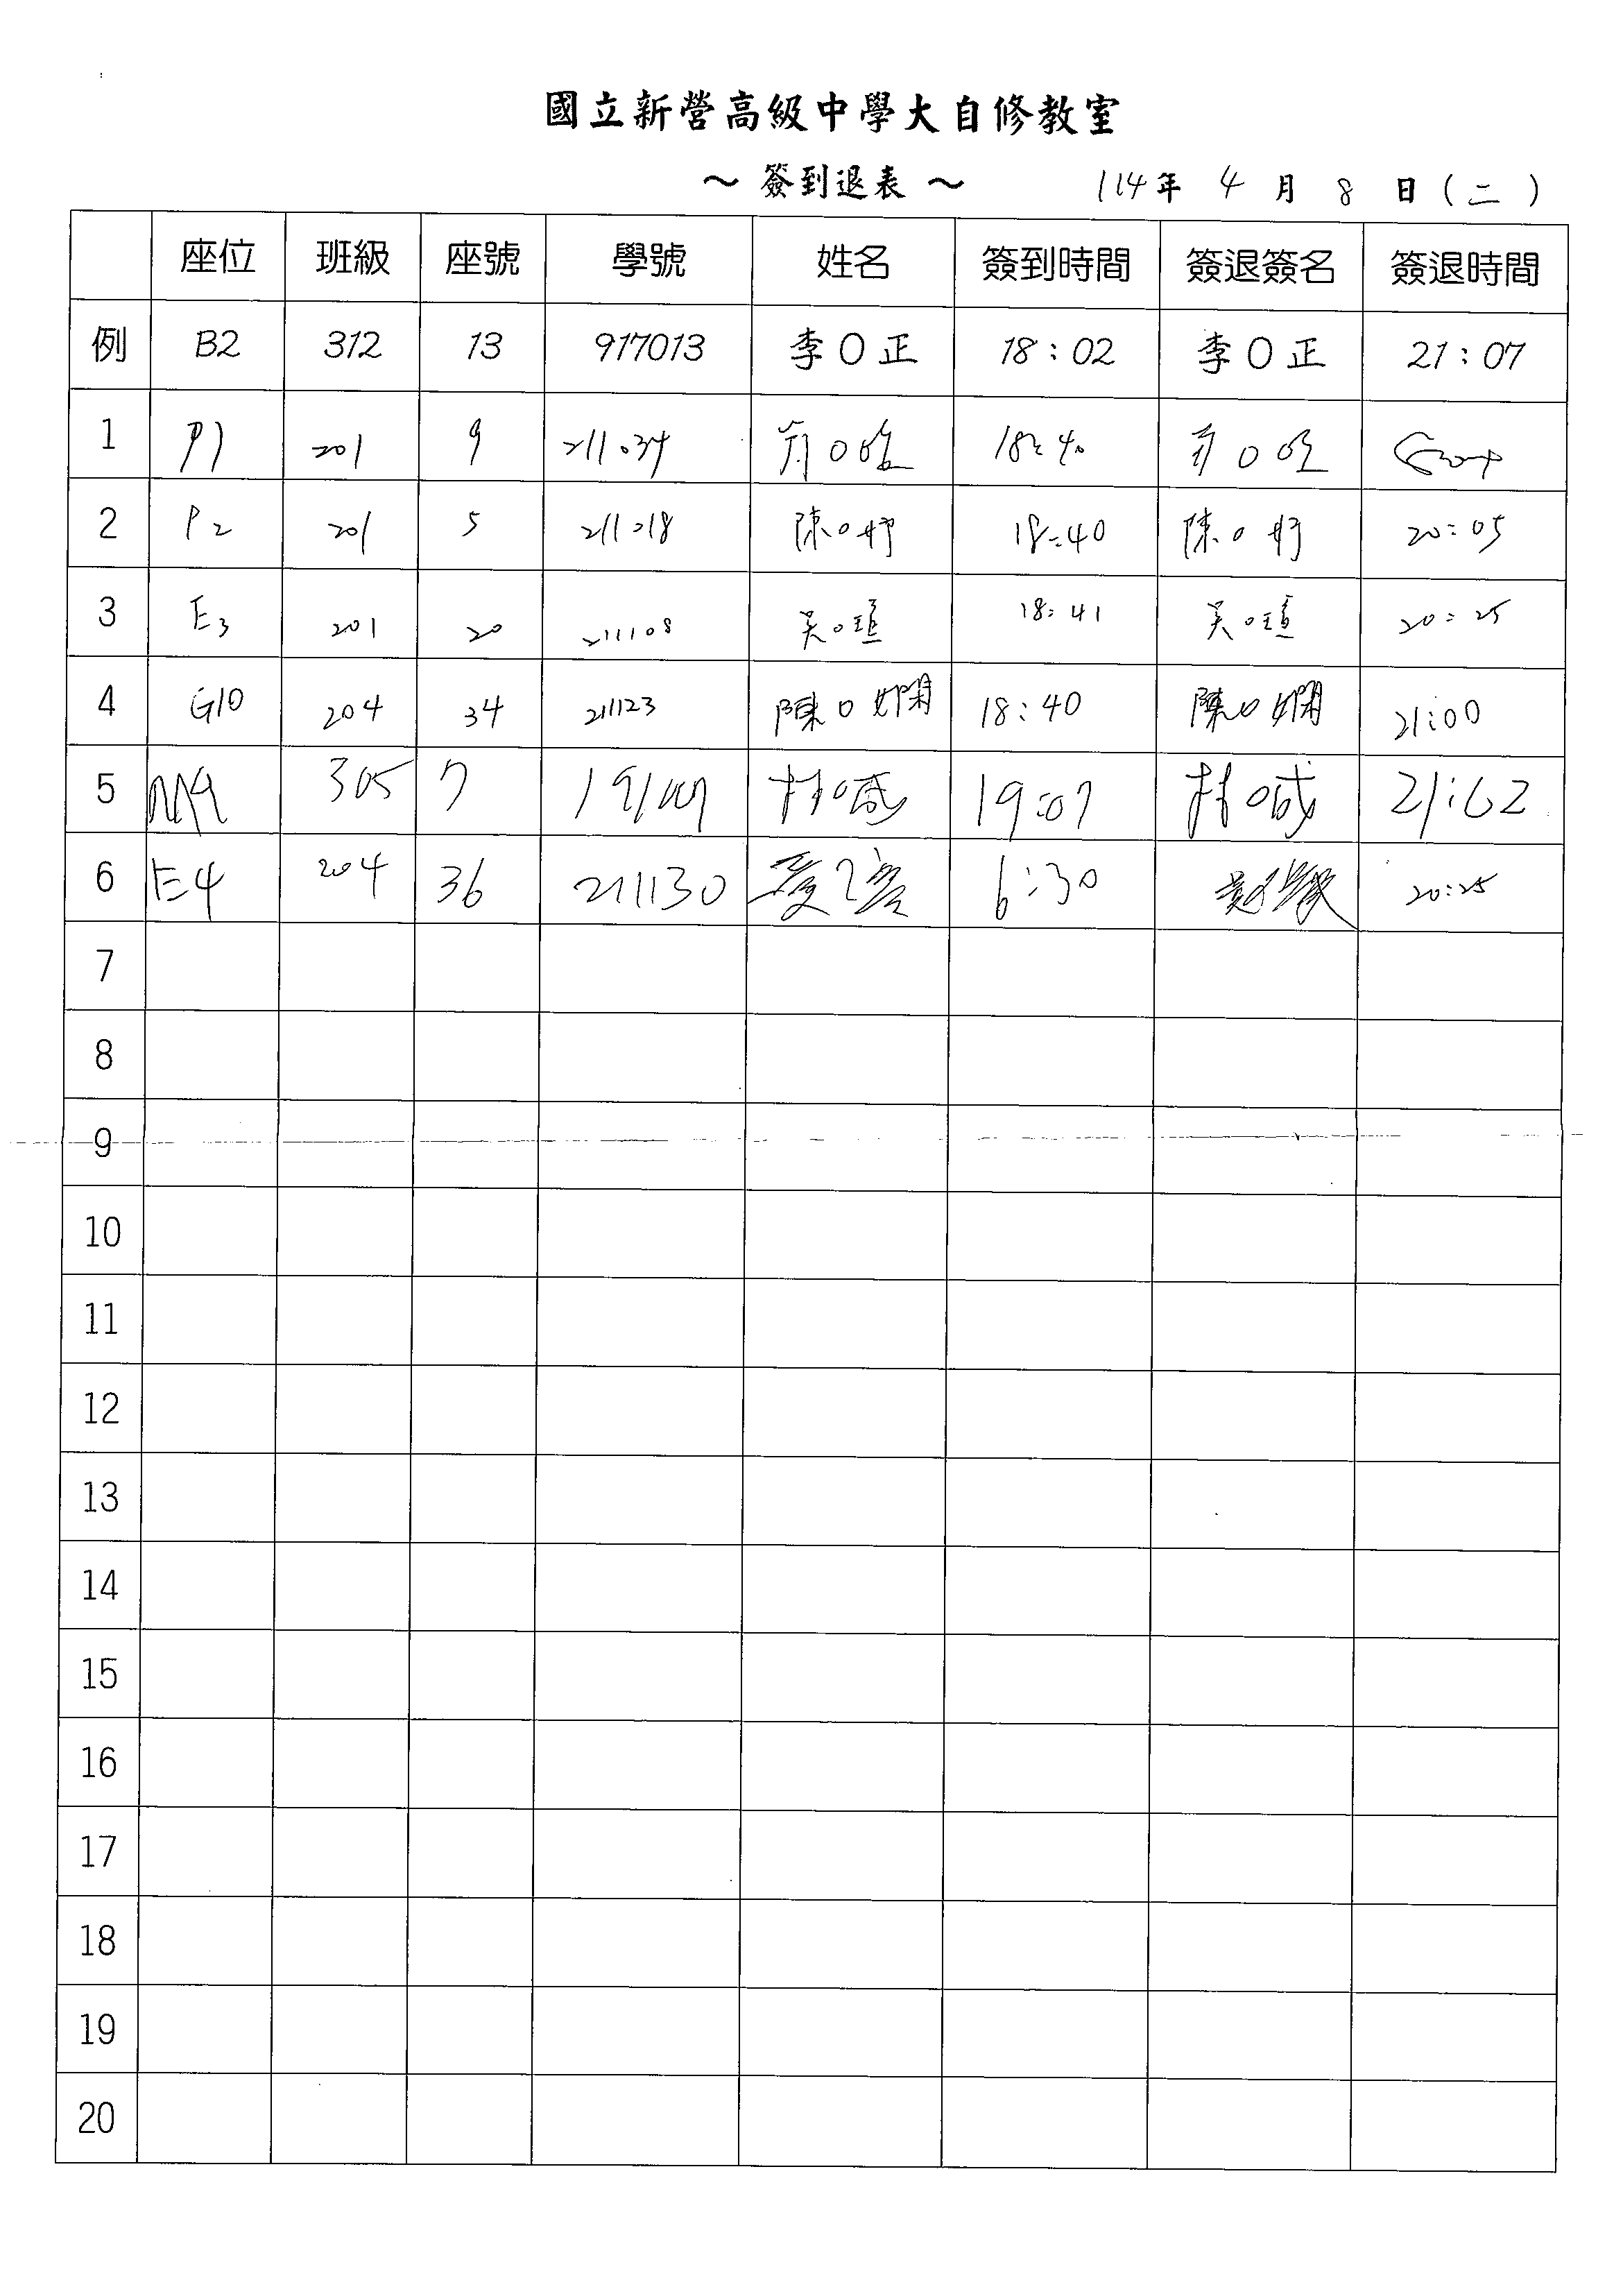 國立新營高級中學大自修教室
～ 簽到退表 ～ 114年 4 月 8 日 (二)
座位 班級 座號 學號 姓名 簽到時間 簽退簽名 簽退時間
例 B2 312 13 917013 李O正 18:02 李O正 21:07
1 P1 201 9 211034 18:40
2 P2 201 5 211018 陳O妤 18:40 陳O妤 20:05
3 E3 201 20 211108 吳O瑄 18:41 吳O瑄 20:25
4 G10 204 34 211123 陳O嫻 18:40 陳O嫻 21:00
5 M9 305 7 林O成 19:07 林O成
6 E4 204 36 211130 6:30 20:25
7
8
9
10
11
12
13
14
15
16
17
18
19
20